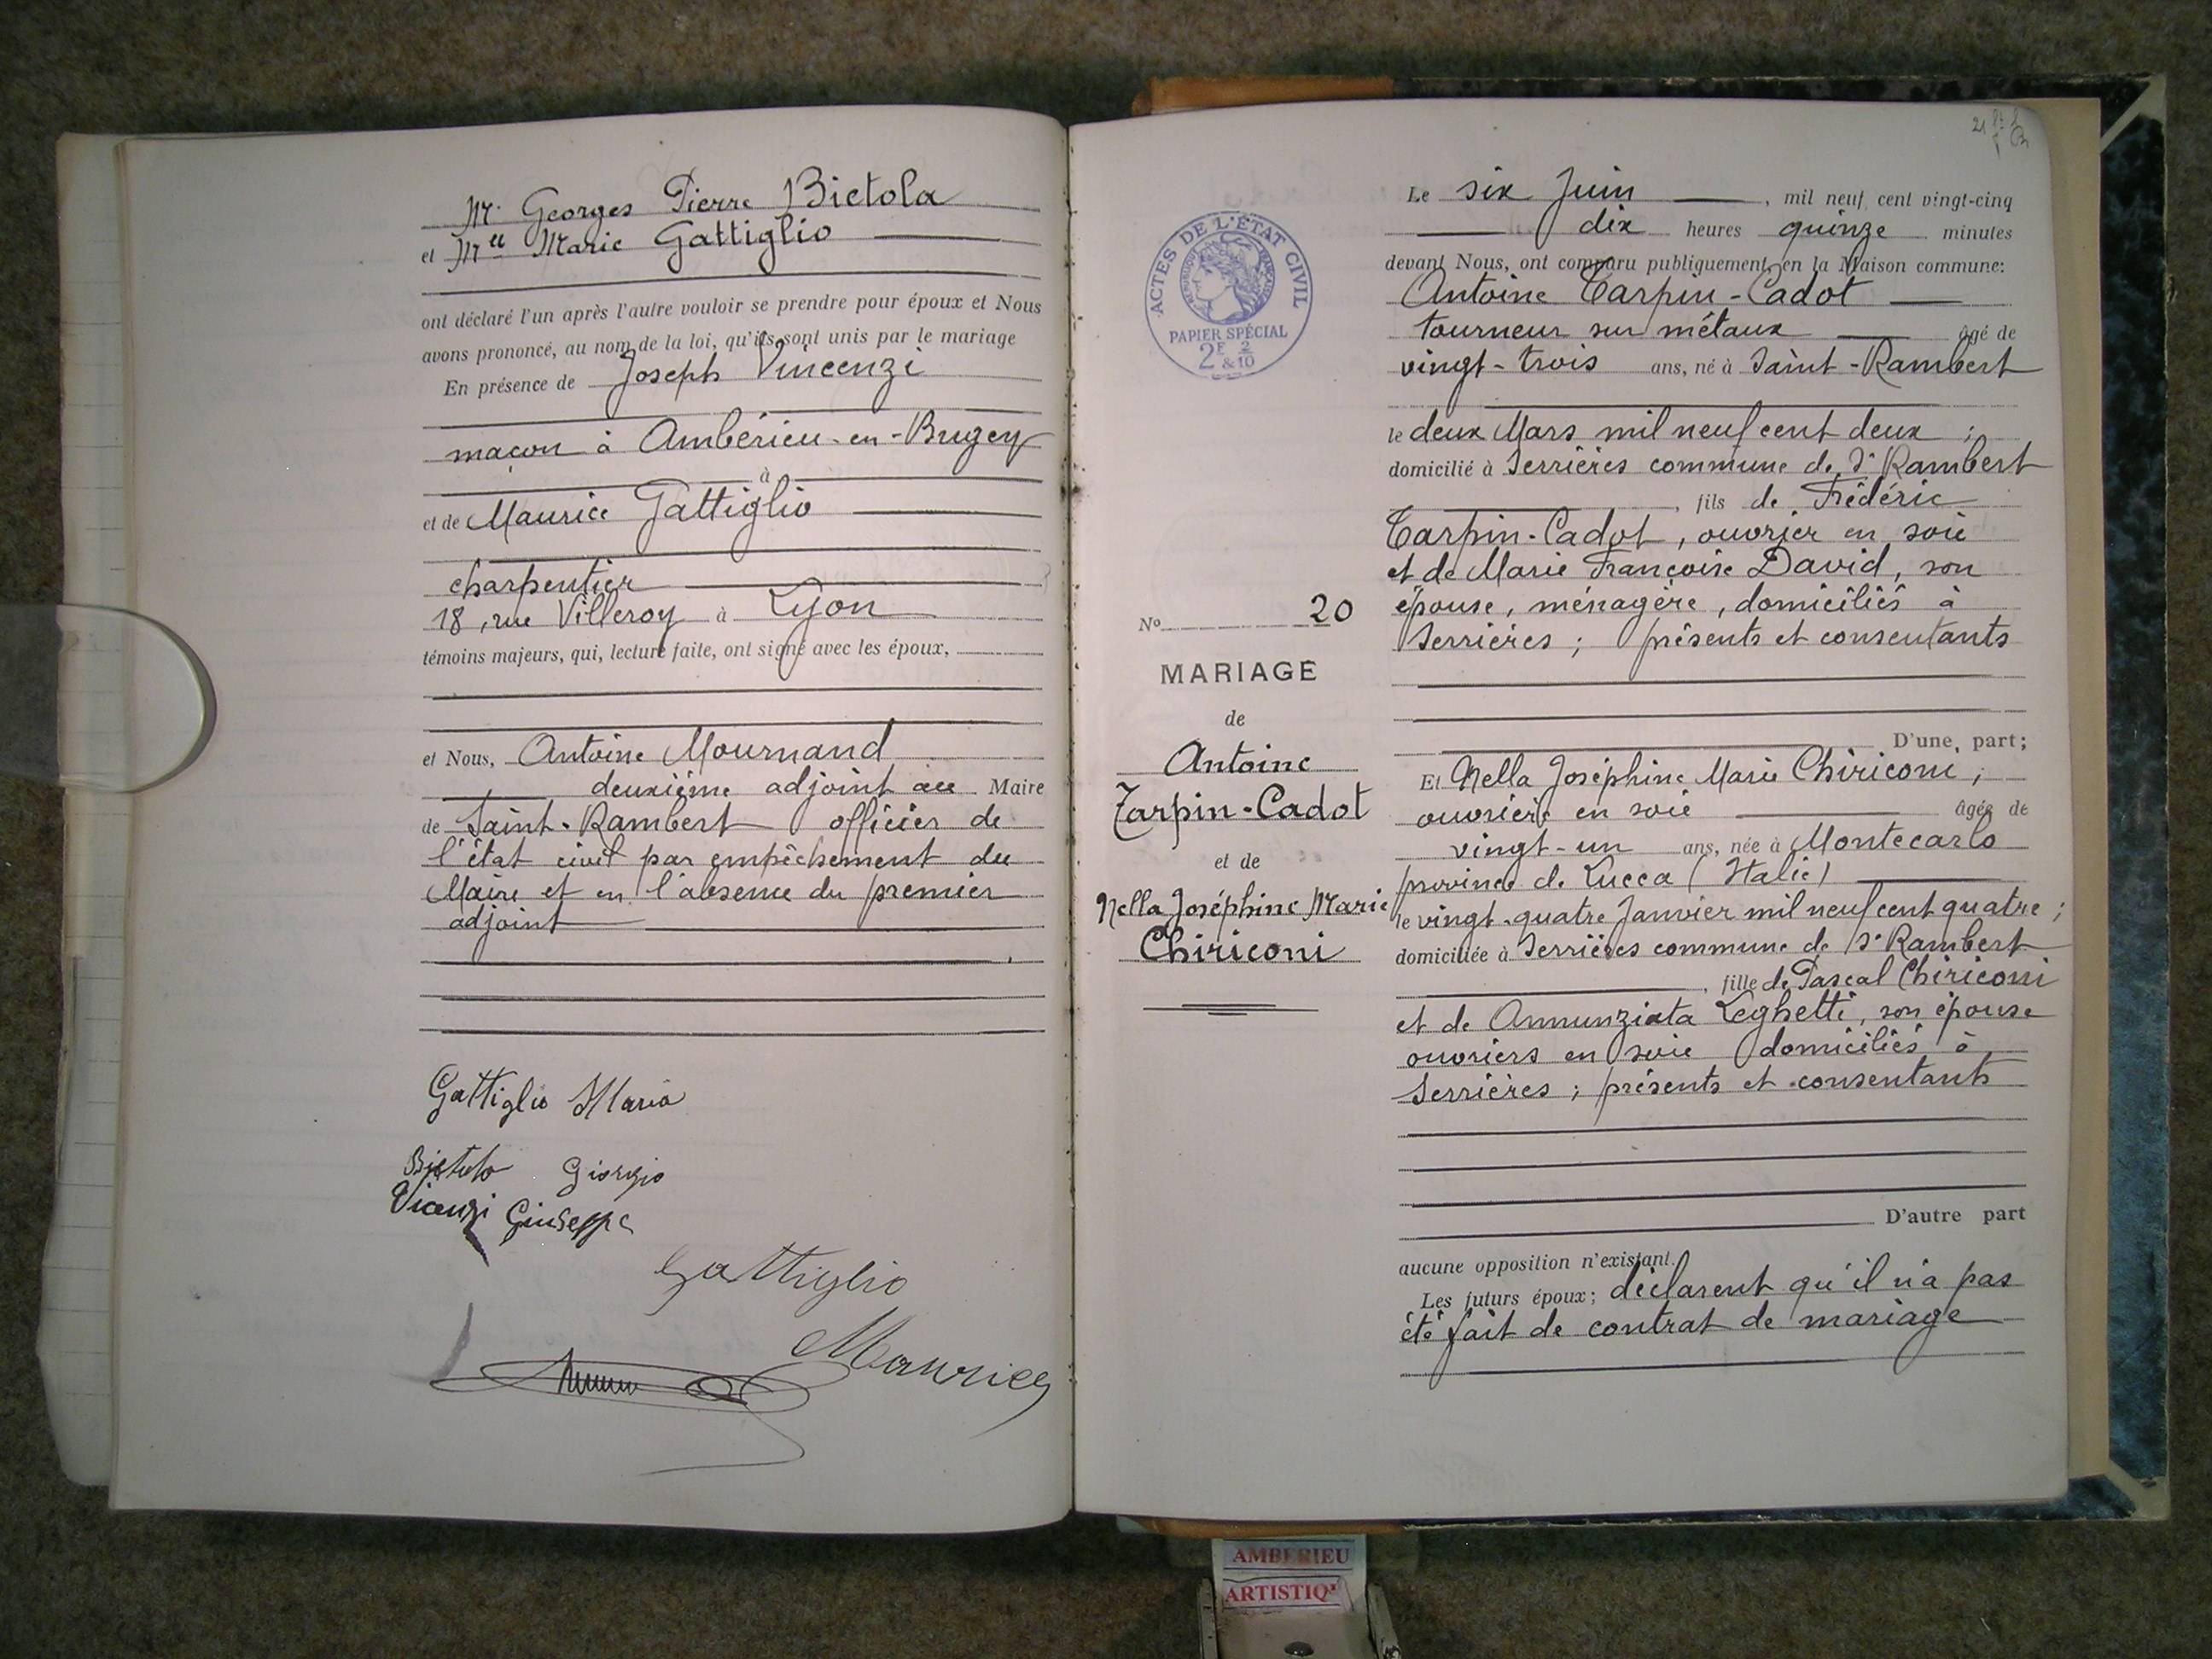 Mr. Georges Pierre Bietola
et Mlle Marie Gattiglio
ont déclaré l'un après l'autre vouloir se prendre pour époux et Nous
avons prononcé, au nom de la loi, qu'ils sont unis par le mariage
En présence de Joseph Vincenzi
maçon à Ambérieu-en-Bugey
à
et de Maurice Gattiglio
charpentier
18, rue Villeroy à Lyon
témoins majeurs, qui, lecture faite, ont signé avec les époux,
et Nous, Antoine Mournand
deuxième adjoint au Maire
de Saint-Rambert officier de
l'état civil par empêchement du
Maire et en l'absence du premier
adjoint
Gattiglio Maria
Bietola Giorgio
Vicenzi Giuseppe
Gattiglio
Maurice
ACTES DE L'ÉTAT CIVIL
RÉPUBLIQUE FRANÇAISE
PAPIER SPÉCIAL
2F & 2/10
No 20
MARIAGE
de
Antoine
Tarpin-Cadot
et de
Nella Joséphine Marie
Chiriconi
21
Le six Juin, mil neuf cent vingt-cinq
dix heures quinze minutes
devant Nous, ont comparu publiquement en la Maison commune:
Antoine Tarpin-Cadot
tourneur sur métaux âgé de
vingt-trois ans, né à Saint-Rambert
le deux Mars mil neuf cent deux ;
domicilié à Serrières commune de St Rambert
, fils de Frédéric
Tarpin-Cadot, ouvrier en soie
et de Marie Françoise David, son
épouse, ménagère, domiciliés à
Serrières ; présents et consentants
D'une part;
Et Nella Joséphine Marie Chiriconi,
ouvrière en soie âgée de
vingt-un ans, née à Montecarlo
province de Lucca (Italie)
le vingt-quatre Janvier mil neuf cent quatre ;
domiciliée à Serrières commune de St Rambert
, fille de Pascal Chiriconi
et de Annunziata Leghetti, son épouse
ouvriers en soie domiciliés à
Serrières ; présents et consentants
D'autre part
aucune opposition n'existant.
Les futurs époux; déclarent qu'il n'a pas
été fait de contrat de mariage
AMBERIEU
ARTISTIQ